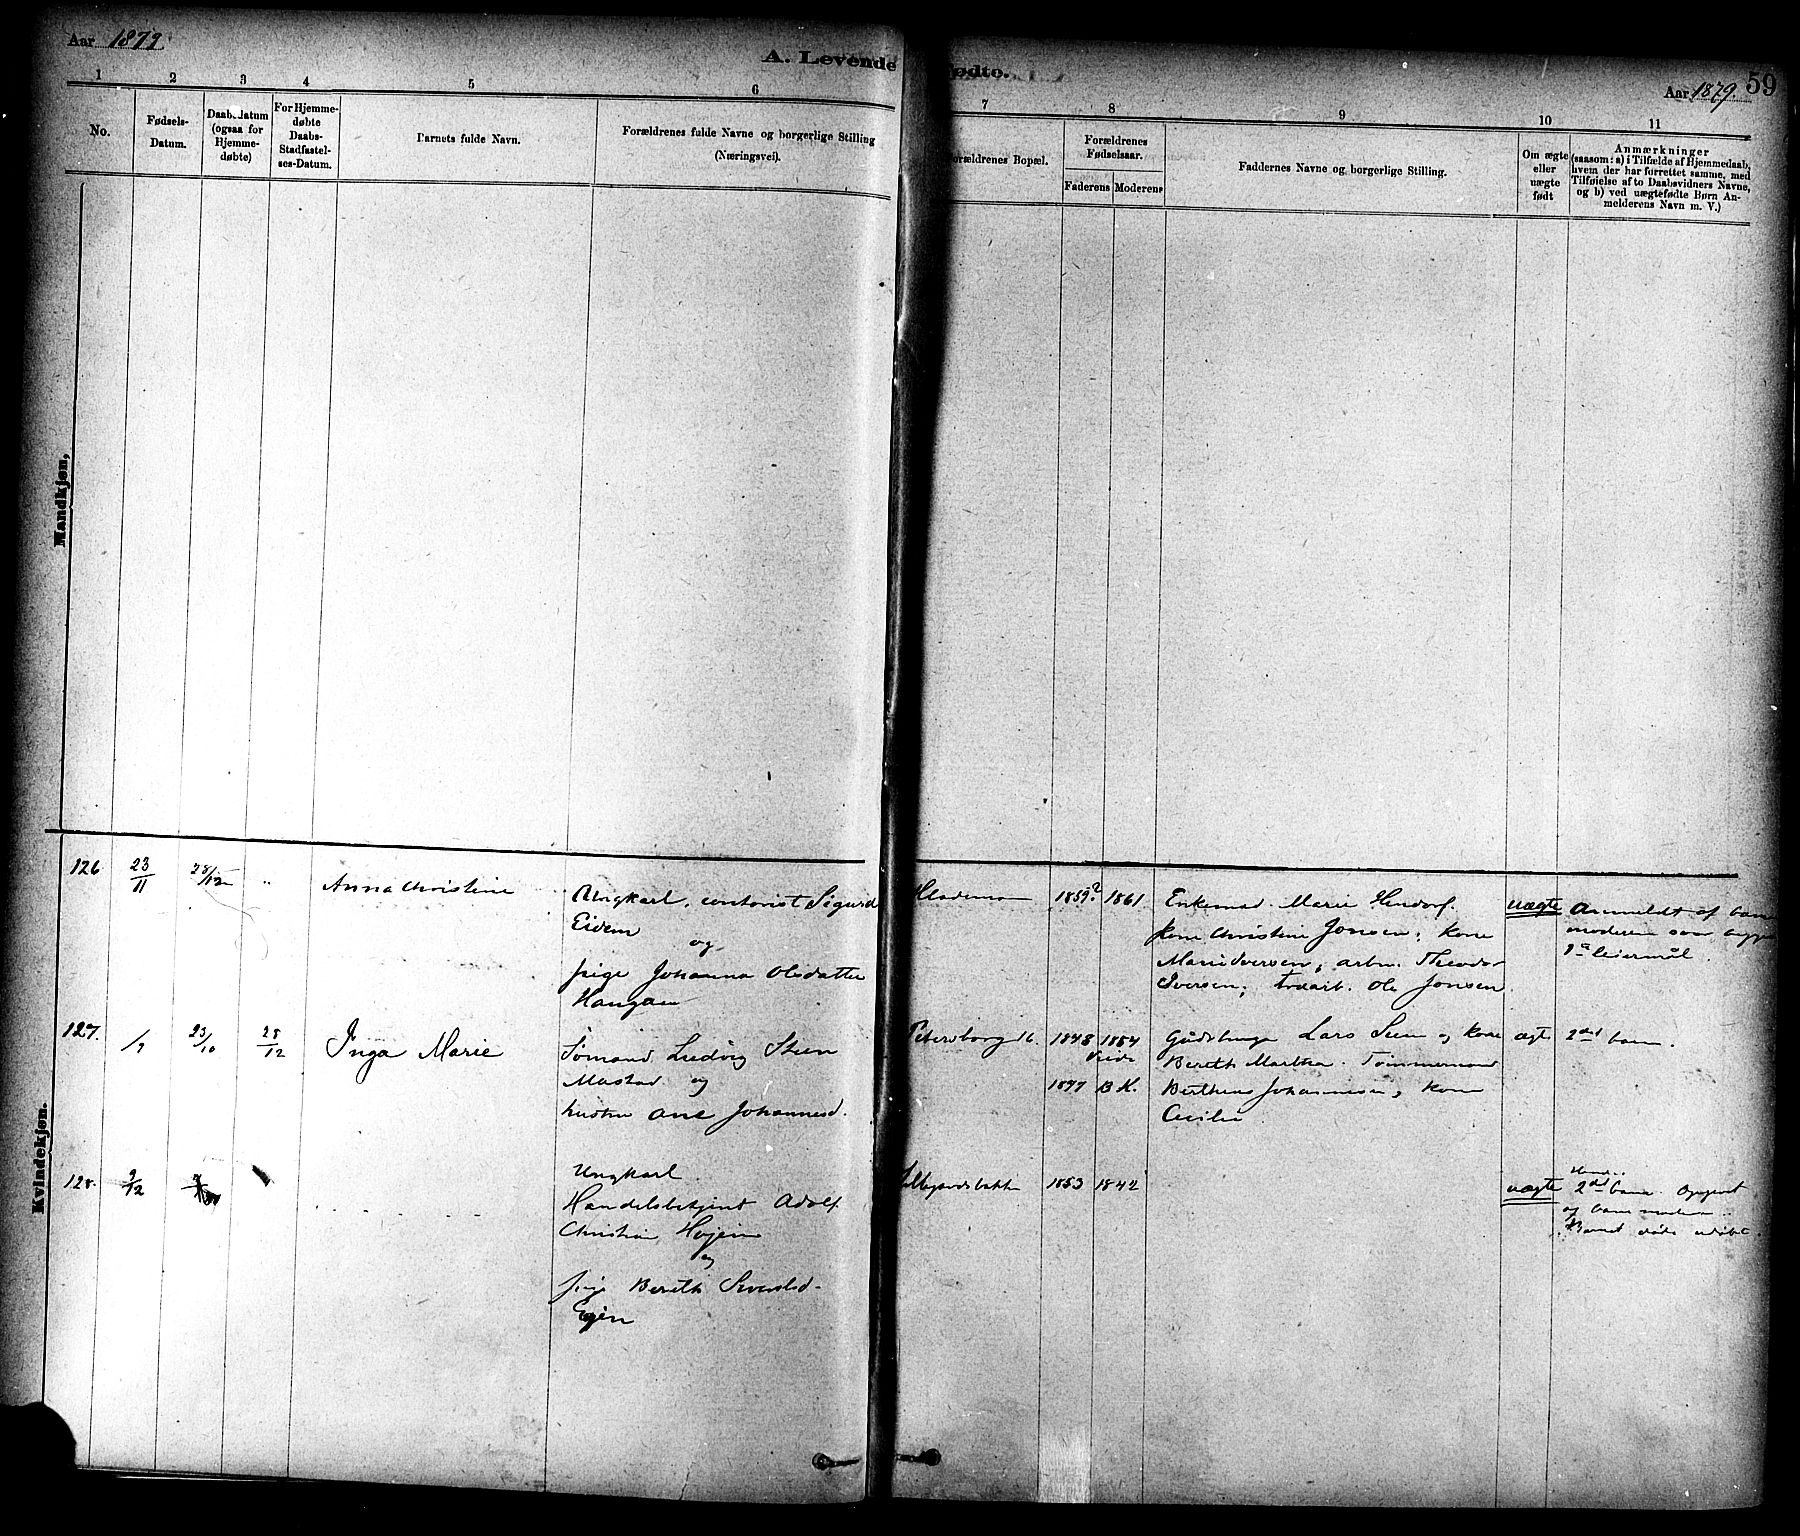 Aar 1879
A. Levende Fødte.
Aar 1879.
59
1 2 3 4 5 6 7 8 9 10 11
No.
Fødsels-
Datum.
Daabsdatum
(ogsaa for
Hjemme-
døbte)
For Hjemme-
døbte
Daabs-
Stadfæstel-
ses-Datum.
Barnets fulde Navn.
Forældrenes fulde Navne og borgerlige Stilling
(Næringsvei).
Forældrenes Bopæl.
Forældrenes
Fødselsaar.
Faderens Moderens
Faddernes Navne og borgerlige Stilling.
Om ægte
eller
uægte
født
Anmærkninger
(saasom: a) i Tilfælde af Hjemmedaab,
hvem der har forrettet samme, med
Tilføielse af to Daabsvidners Navne,
og b) ved uægtefødte Børn An-
melderens Navn m. V.)
Mandkjøn.
Kvindekjøn.
126 23/11 28/12 " Anna Christine
Ungkarl, contorist Sigurd
Eidem
og
pige Johanna Olsdatter
Haugan
1859? 1861
Enkemad. Marie
kone Christine Jonsen, kone
Marie Iversen, arbm. Theodor
Iversen, Ole Jonsen.
uægte
Anmeldt af barne
moderen
1ste leiermål.
127. /9 23/10 28/12 Inga Marie
Sømand Ludvig Steen
Mastad og
hustru Ane Johannesd.
Petersborg
1848 1854
1877 B.K.
Lars Steen og kone
Bereth Martha. Tømmermand
Johannesen, kone
Cecilie
ægte
2det barn.
128. 9/12
Ungkarl
Handelsbetjent Adolf
Christian
og
pige Bereth
1853 1842
uægte
2det barn. Opgivet
af barnemoderen.
Barnet døde udøbt.